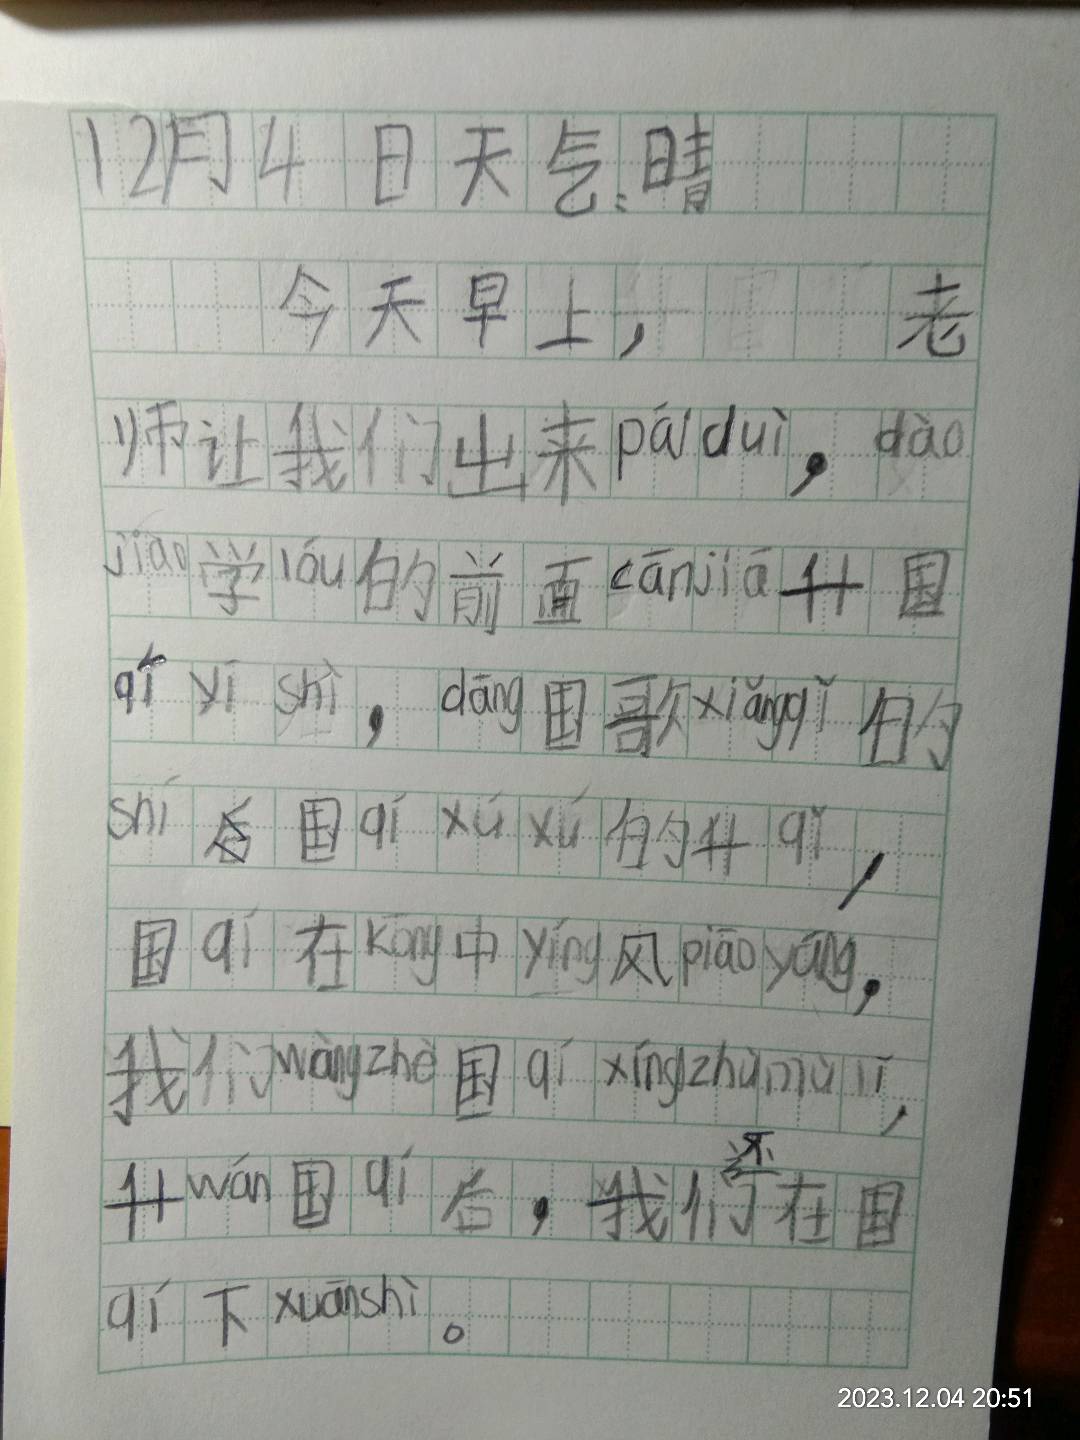 12月4日天气:晴
今天早上,老
师让我们出来pái duì,dào
jiāo学lóu的前面cānjiā升国
qí yí shì,dāng国歌xiǎngqǐ的
shí后国qí xú xú的升qǐ,
国qí在kōng中yíng风piāoyáng,
我们wàngzhè国qí xíngzhùmùlǐ,
升wán国qí后,我们还在国
qí下xuānshì。
2023.12.04 20:51